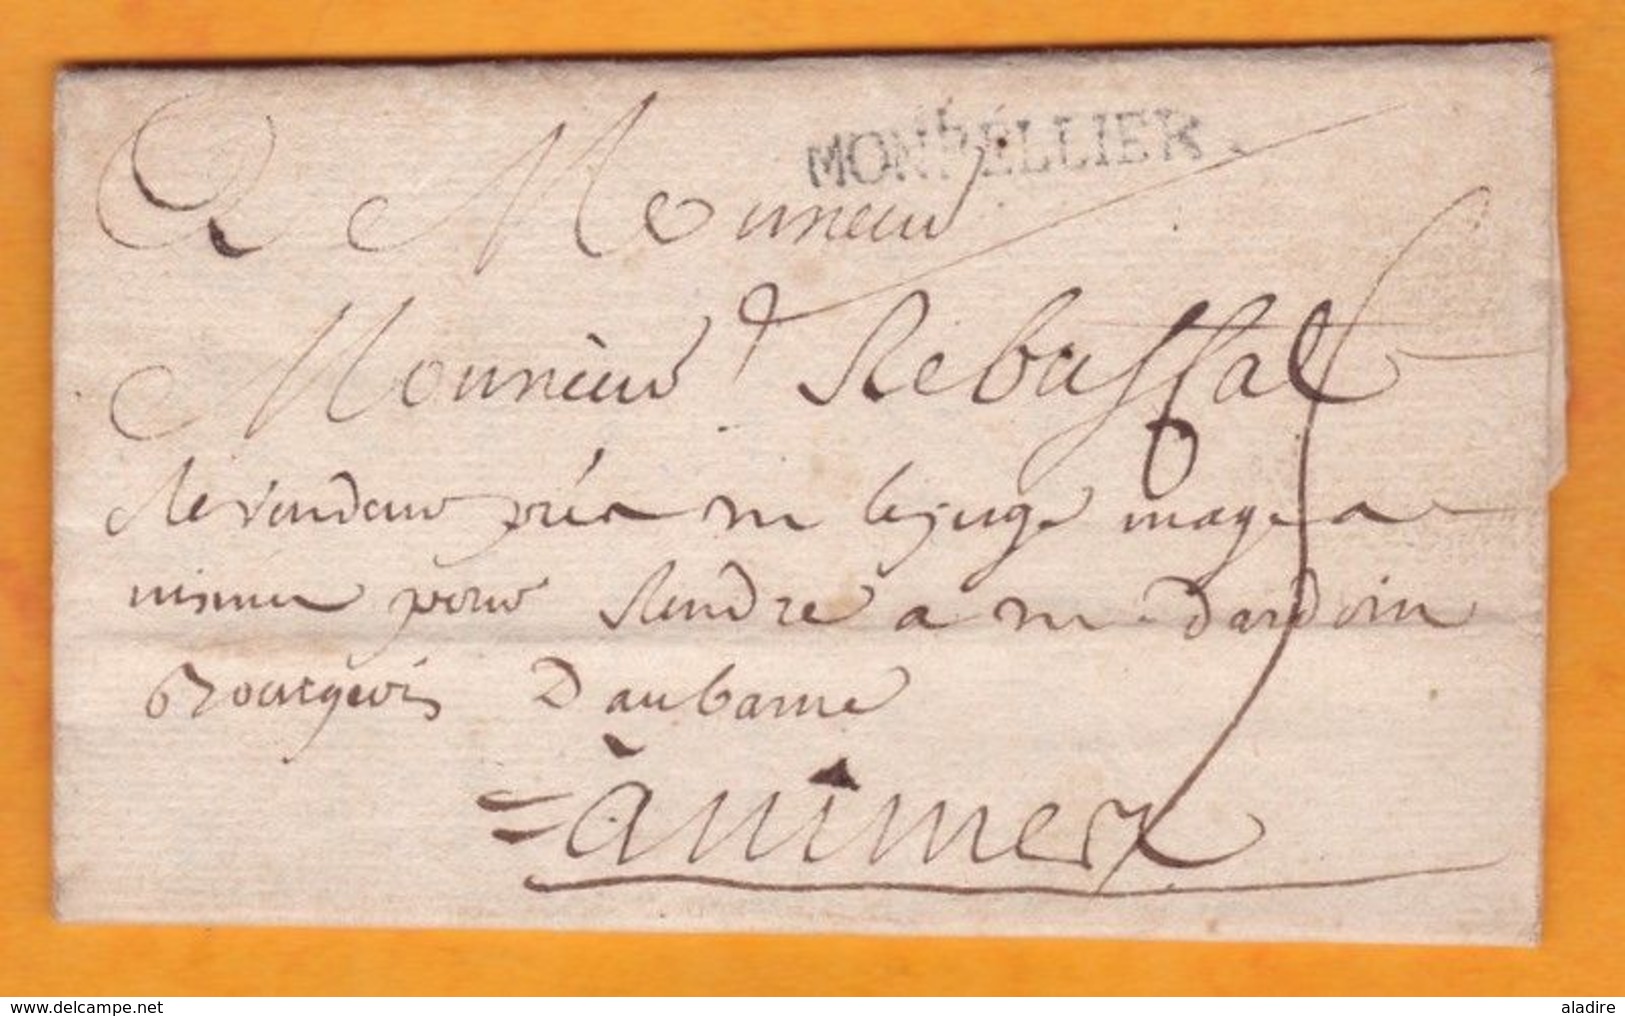 MONPELLIER
A Monsieur
Monsieur Rebuffat
Revendeur près m le juge mage a
nismes pour Rendre a m. Dardoin
Bourgeois Daubarne
= à nimes
delcampe.net
aladire